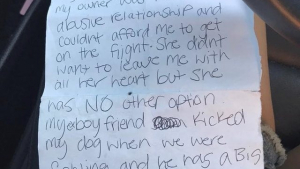 my owner was in an
abusive relationship and
couldnt afford me to get
on the flight. She didnt
want to leave me with
all her heart but she
has NO other option
my boyfriend kicked
my dog when we were
and he has a Big